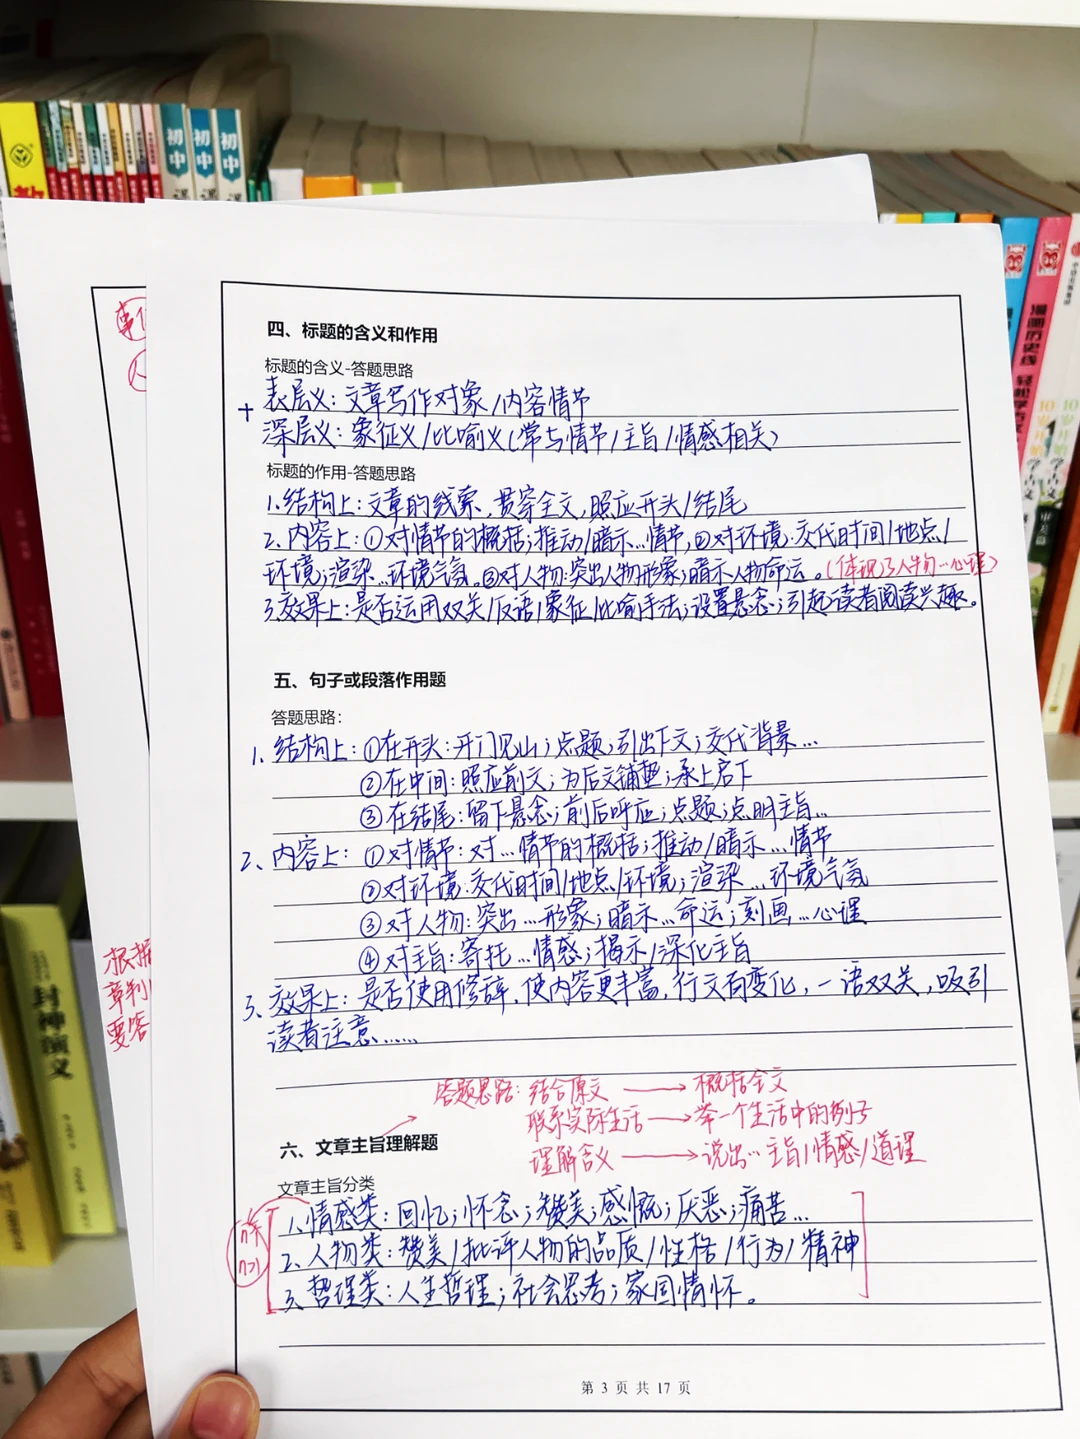 初中
初中
初中
四、标题的含义和作用
标题的含义-答题思路
+ 表层义：文章写作对象/内容情节
深层义：象征义/比喻义(常与情节/主旨/情感相关)
标题的作用-答题思路
1.结构上：文章的线索，贯穿全文，照应开头/结尾
2、内容上：①对情节的概括；推动/暗示…情节，②对环境：交代时间/地点/
环境；渲染…环境气氛。③对人物：突出人物形象；暗示人物命运。(体现了人物…心理)
3.效果上：是否运用双关/反语/象征/比喻手法；设置悬念；引起读者阅读兴趣。
五、句子或段落作用题
答题思路：
1、结构上：①在开头：开门见山；点题；引出下文；交代背景…
②在中间：照应前文；为后文铺垫；承上启下
③在结尾：留下悬念；前后呼应；点题；点明主旨…
2、内容上：①对情节：对…情节的概括；推动/暗示…情节
②对环境：交代时间/地点/环境；渲染…环境气氛
③对人物：突出…形象；暗示…命运；刻画…心理
④对主旨：寄托…情感；揭示/深化主旨
3、效果上：是否使用修辞，使内容更丰富，行文有变化，一语双关，吸引
读者注意……
答题思路：结合原文→概括全文
联系实际生活→举一个生活中的例子
理解含义→说出…主旨/情感/道理
六、文章主旨理解题
文章主旨分类
1.情感类：回忆；怀念；赞美；感慨；厌恶；痛苦…
2、人物类：赞美/批评人物的品质/性格/行为/精神
3、哲理类：人生哲理；社会思考；家国情怀。
第 3 页 共 17 页
根据
章判
要答
封神演义
漫画历史线